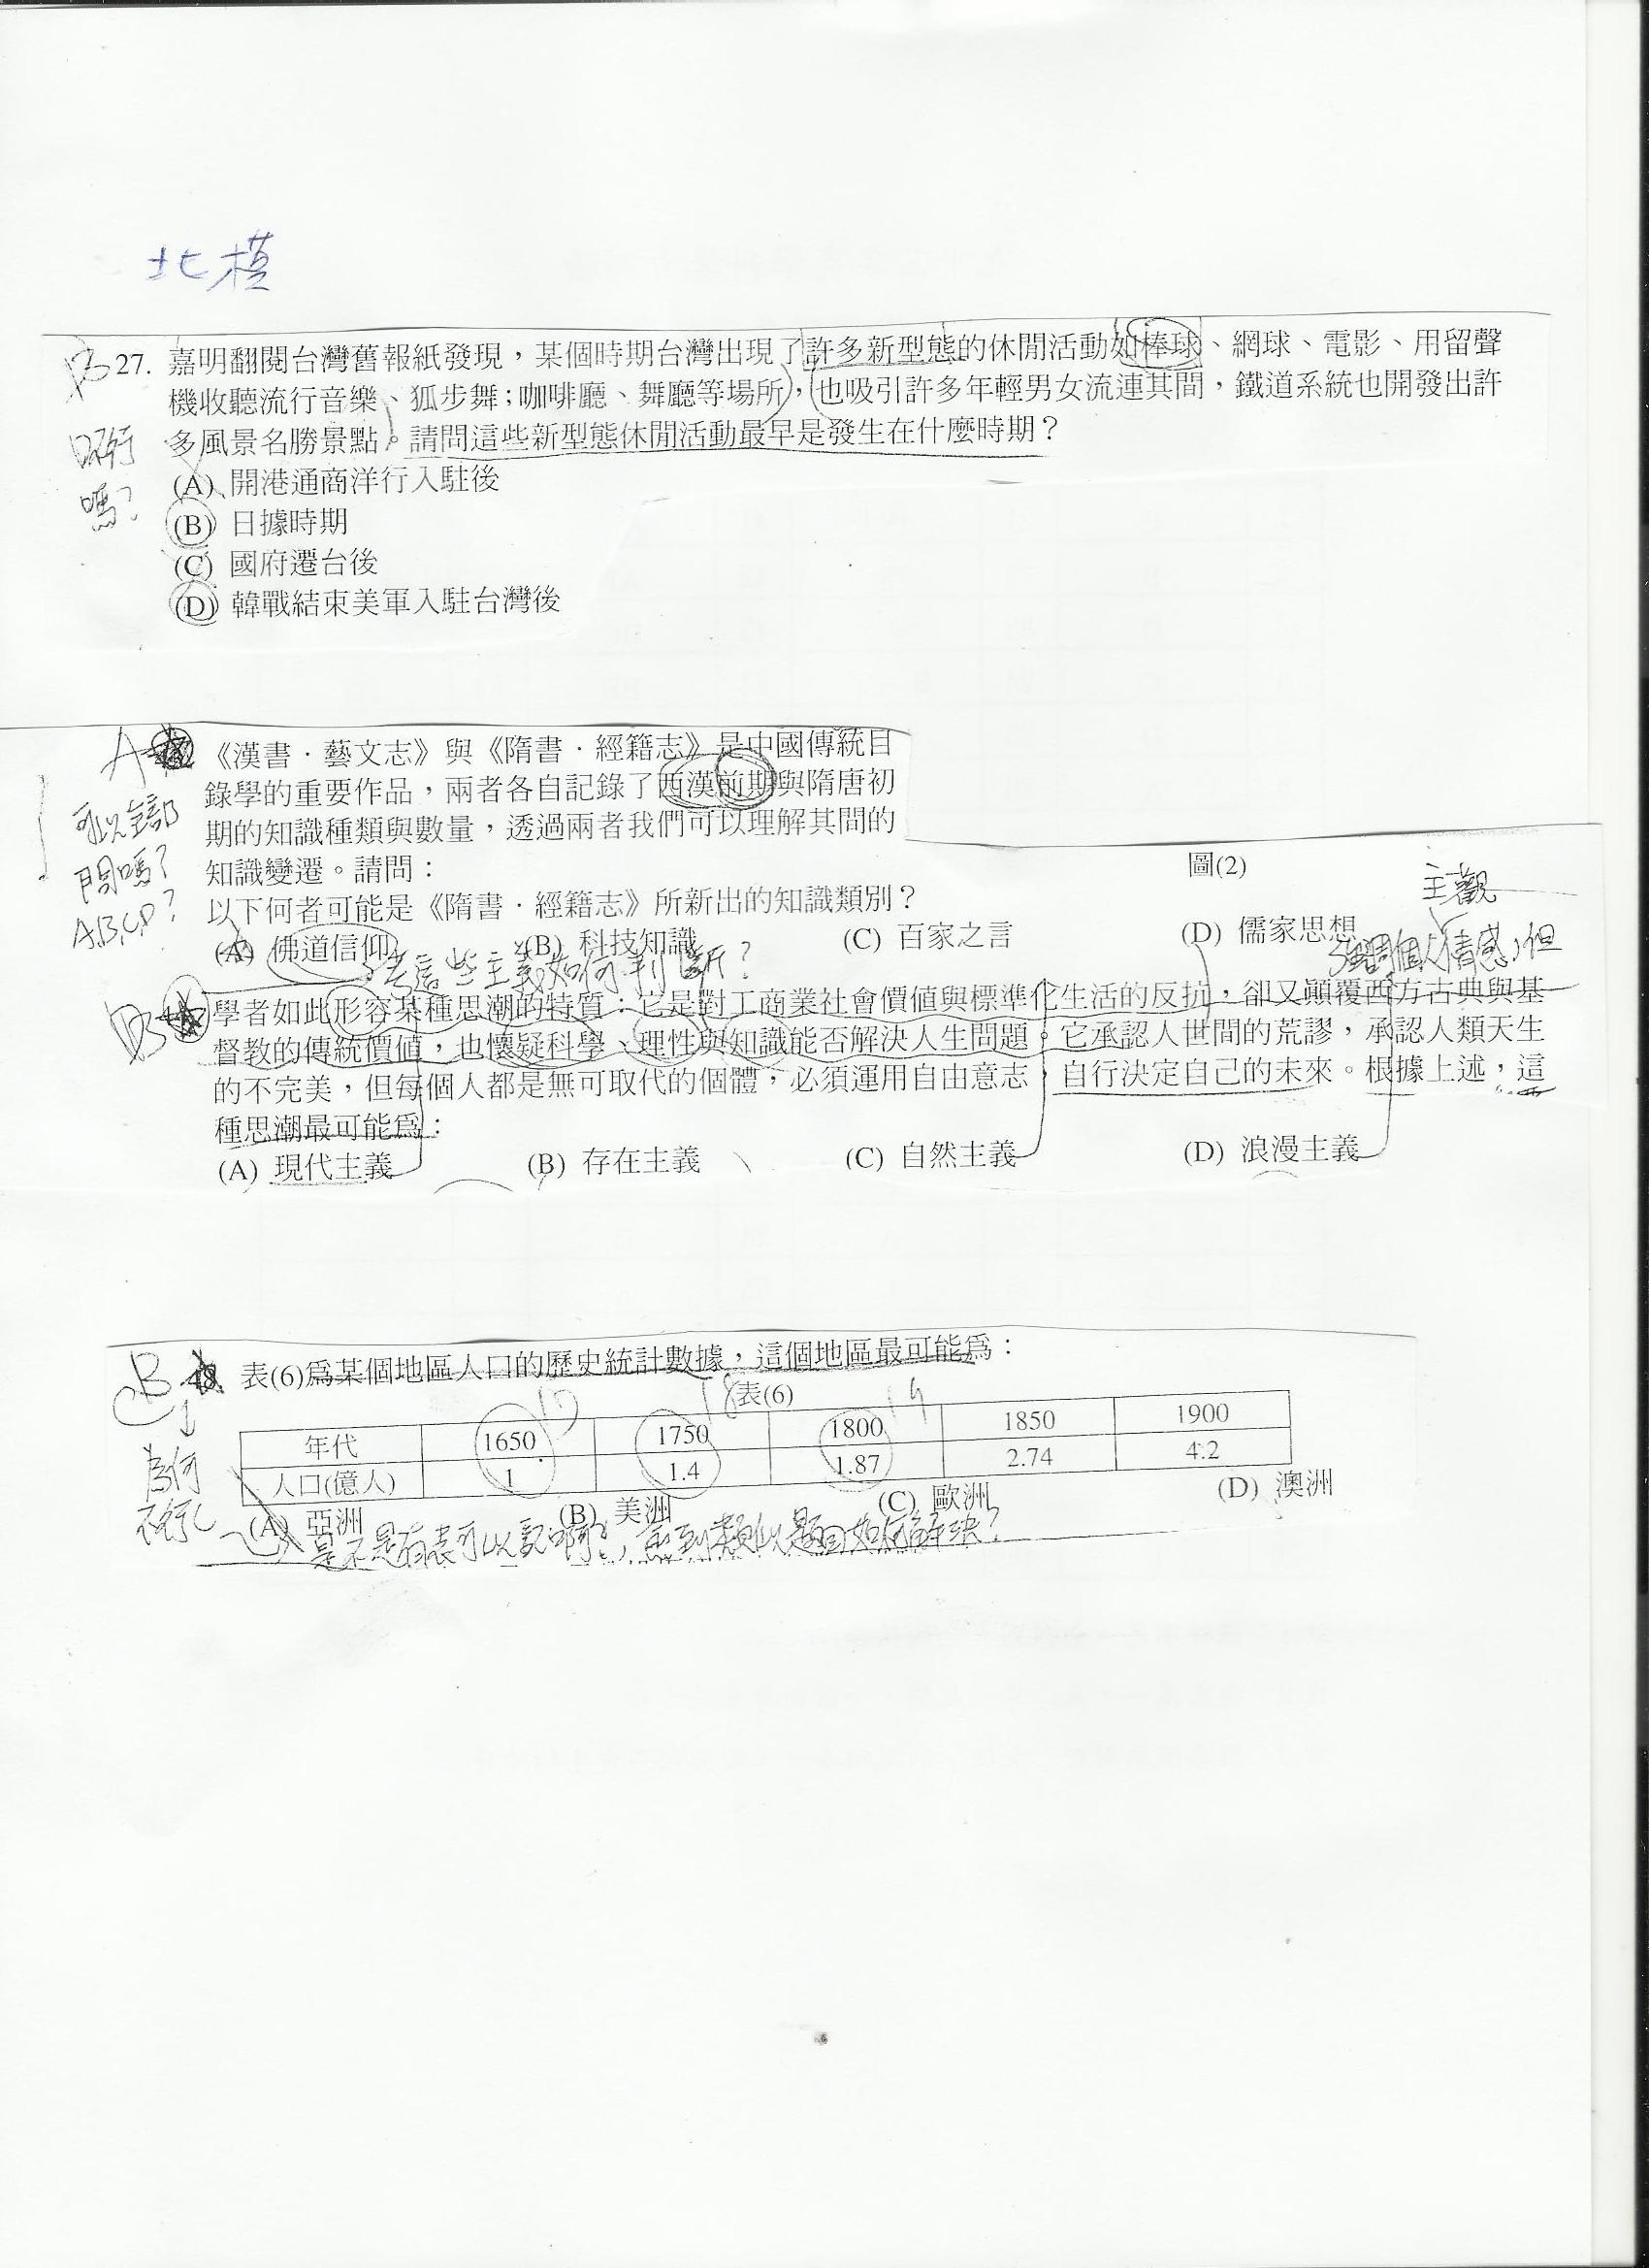 北模
B 27. 嘉明翻閱台灣舊報紙發現，某個時期台灣出現了許多新型態的休閒活動如棒球、網球、電影、用留聲
機收聽流行音樂、狐步舞；咖啡廳、舞廳等場所，也吸引許多年輕男女流連其間，鐵道系統也開發出許
多風景名勝景點。請問這些新型態休閒活動最早是發生在什麼時期？
嗎？
(A) 開港通商洋行入駐後
(B) 日據時期
(C) 國府遷台後
(D) 韓戰結束美軍入駐台灣後
A
《漢書．藝文志》與《隋書．經籍志》是中國傳統目
錄學的重要作品，兩者各自記錄了西漢前期與隋唐初
期的知識種類與數量，透過兩者我們可以理解其間的
知識變遷。請問：
以下何者可能是《隋書．經籍志》所新出的知識類別？
(A) 佛道信仰 (B) 科技知識 (C) 百家之言 (D) 儒家思想
可以全部
問嗎？
A,B,C,D？
圖(2)
主觀
強調個人情感，但
這些主義如何判斷？
B
學者如此形容某種思潮的特質：它是對工商業社會價值與標準化生活的反抗，卻又顛覆西方古典與基
督教的傳統價值，也懷疑科學、理性與知識能否解決人生問題。它承認人世間的荒謬，承認人類天生
的不完美，但每個人都是無可取代的個體，必須運用自由意志，自行決定自己的未來。根據上述，這
種思潮最可能為：
(A) 現代主義 (B) 存在主義 (C) 自然主義 (D) 浪漫主義
B
表(6)為某個地區人口的歷史統計數據，這個地區最可能為：
C
為何
不行C
17 18 表(6) 19
年代 1650 1750 1800 1850 1900
人口(億人) 1 1.4 1.87 2.74 4.2
(A) 亞洲 (B) 美洲 (C) 歐洲 (D) 澳洲
是不是有表可以說明啊？，煮到類似題目如何解決？